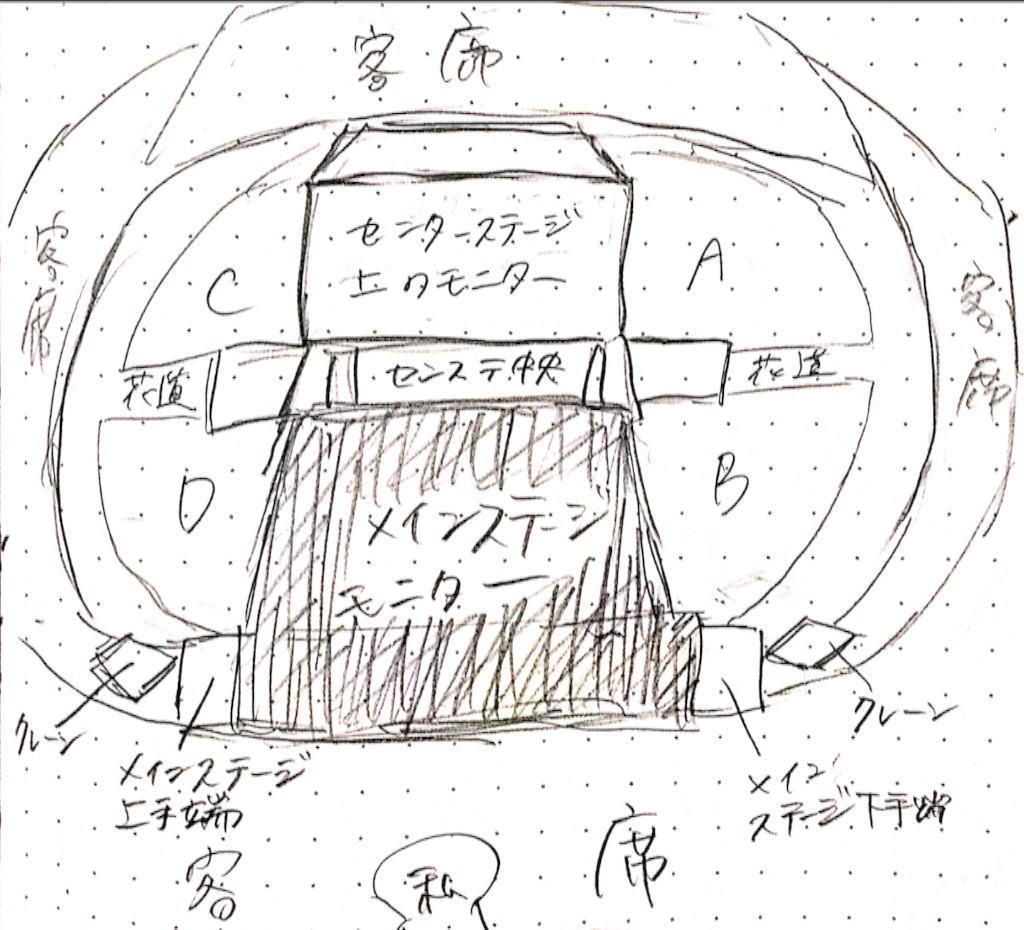 客席
センターステージ
上のモニター
A
C
客席
客席
花道
センステ中央
花道
D
B
メインステージ
モニター
クレーン
クレーン
メインステージ
上手端
メイン
ステージ下手端
客
席
私